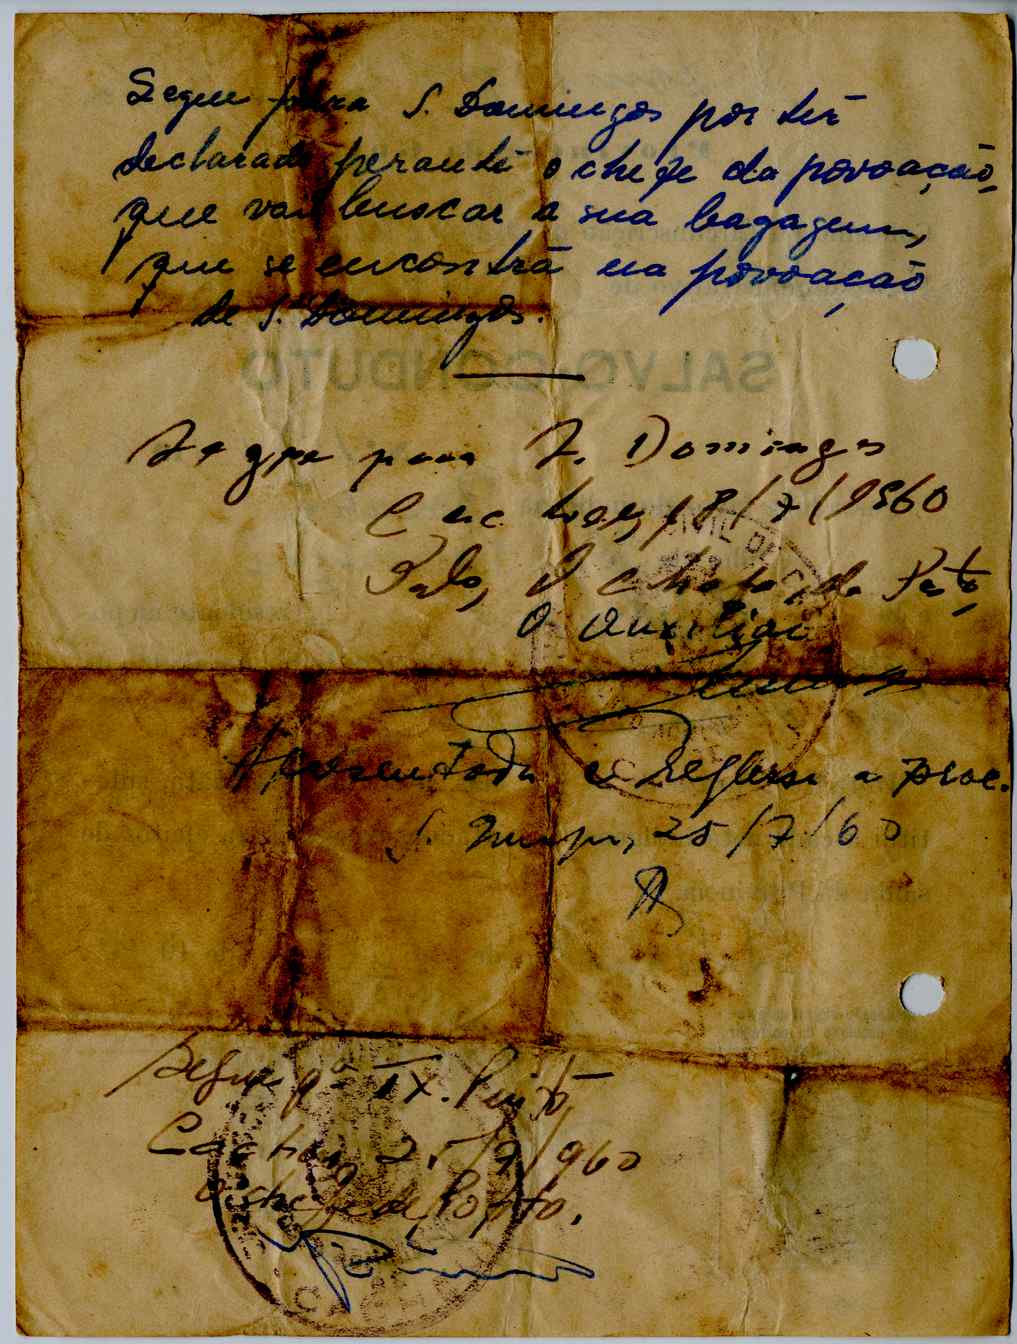 Segue para S. Domingos por ter
declarado perante o chefe da povoação,
que vai buscar a sua bagagem,
que se encontra na povoação
de S. Domingos.
SALVO CONDUTO
Segue para S. Domingos
Cacheu, 18/7/1960
Pelo, O Chefe do Posto,
O Auxiliar
Apresentada e regressa a proc.
S. Domingos, 25/7/60
Segue pª
Cacheu 25/7/960
O chefe de Posto,
CACHEU